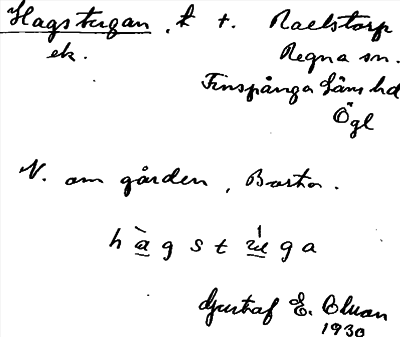 Hagstugan, t t. Raelstorp
ek. Regna sn.
Finspånga läns hd
Ögl
N. om gården, Borta.
h à g s t ú g a
Gustaf E. Bluan
1930